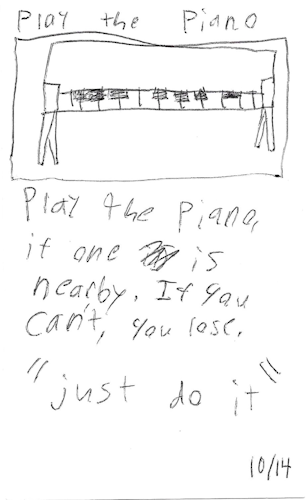 Play the Piano
Play the Piano,
if one is
nearby. If you
can't, you lose.
"just do it"
10/14